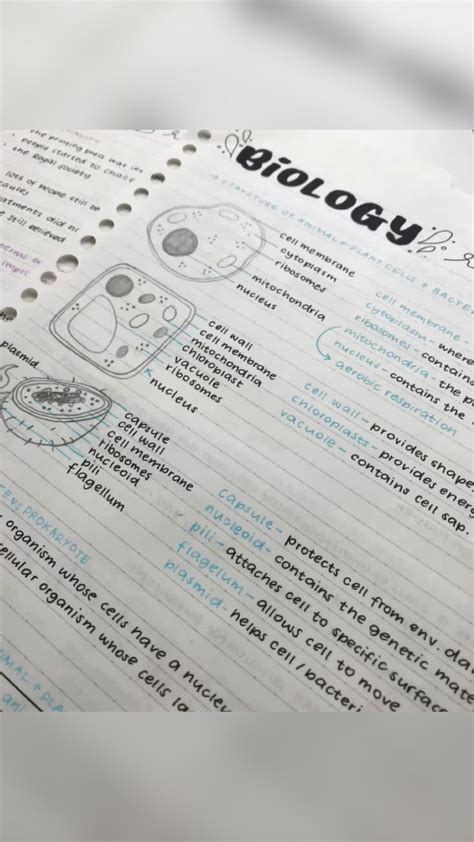 the printing press was in
people started to change
the Royal Society
lots of people still be
causes
atments did n
still believed
Biology
STRUCTURE OF ANIMAL + PLANT CELLS + BACTE
cell membrane
cytoplasm
ribosomes
mitochondria
nucleus
cell wall
cell membrane
mitochondria
chloroplast
vacuole
ribosomes
nucleus
plasmid
capsule
cell wall
cell membrane
ribosomes
nucleoid
pili
flagellum
cell membrane -
cytoplasm - where
ribosomes - contain
mitochondria - the p
nucleus - contains the
aerobic respiration
cell wall - provides shape
chloroplasts - provides energ
vacuole - contains cell sap.
capsule - protects cell from env. da
nucleoid - contains the genetic mate
pili - attaches cell to specific surfac
flagelum - allows cell to move
plasmid - helps cell/bacteri
PROKARYOTE
organism whose cells have a nucleu
ellular organism whose cells la
IMAL + PLA
ani